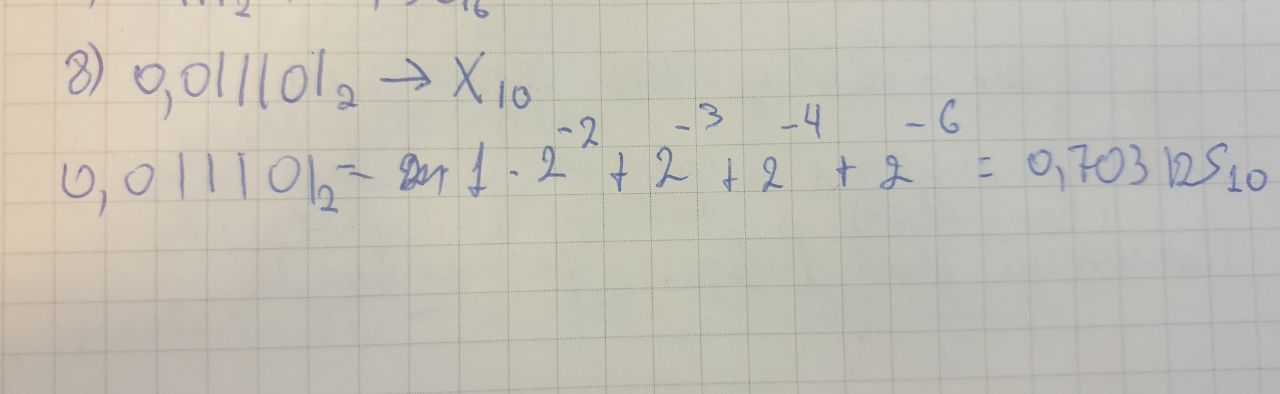 8) 0,011101₂ → X₁₀
0,011101₂ = 1 · 2⁻² + 2⁻³ + 2⁻⁴ + 2⁻⁶ = 0,703125₁₀